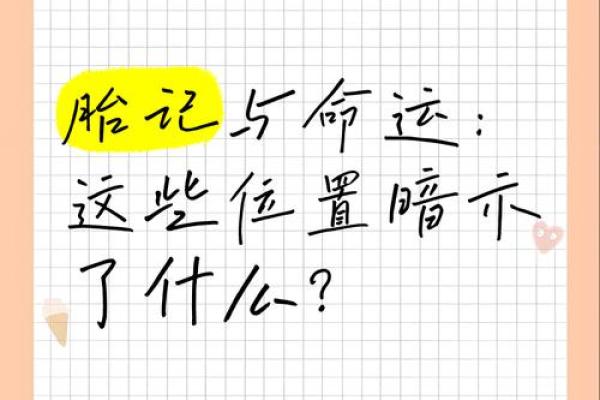 胎记与命运：
这些位置暗示
了什么？